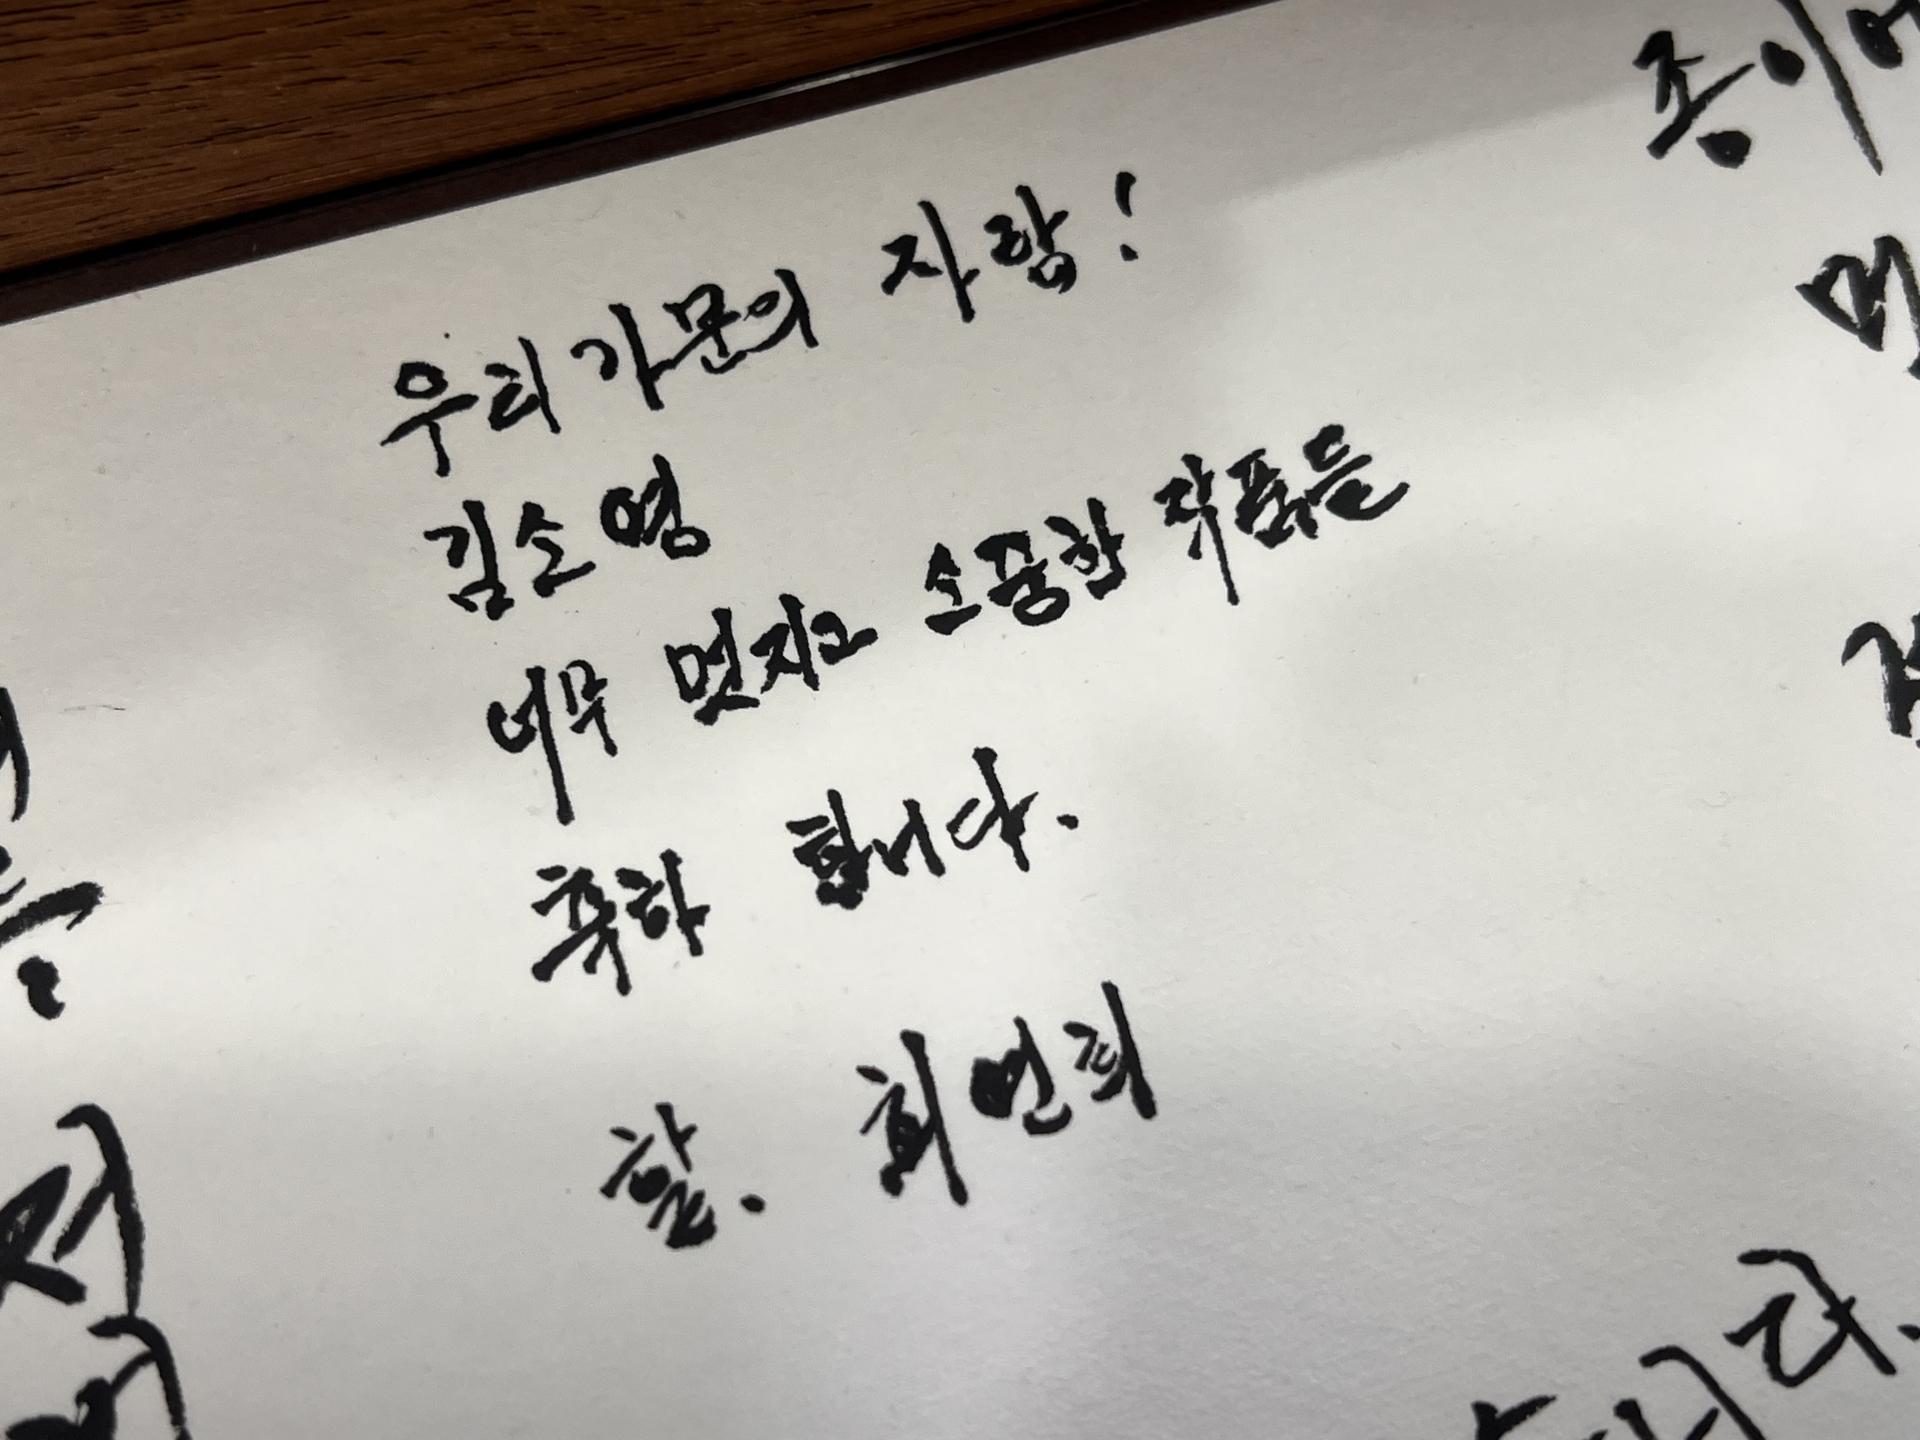 우리 가문의 자랑!
김소영
너무 멋지고 소중한 작품들
축하 합니다.
할. 최연희
종이에